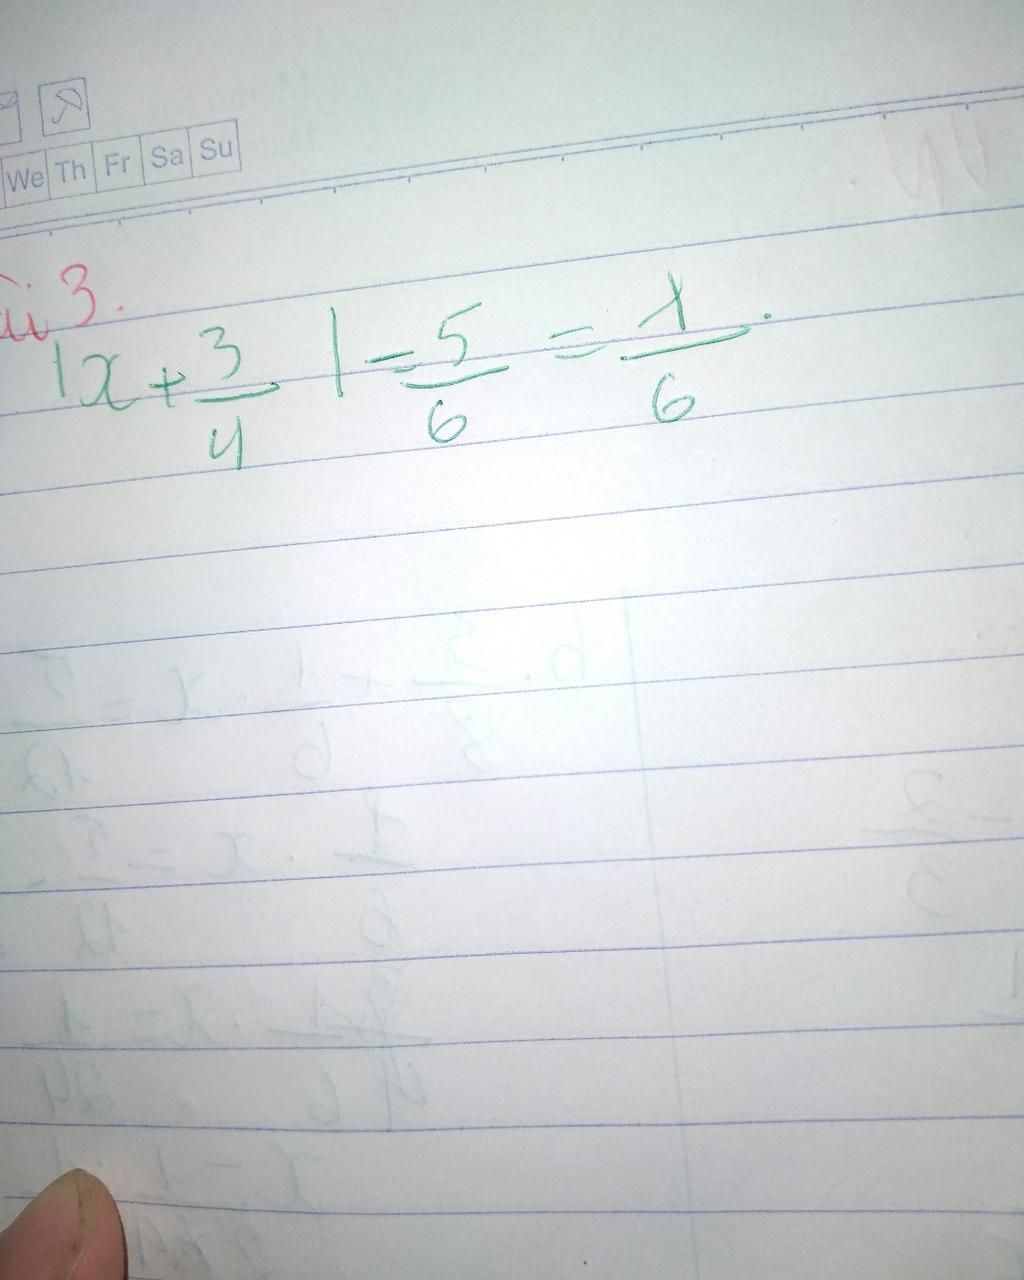 We Th Fr Sa Su
ài 3.
|x + 3/4 | = 5/6 = 1/6.